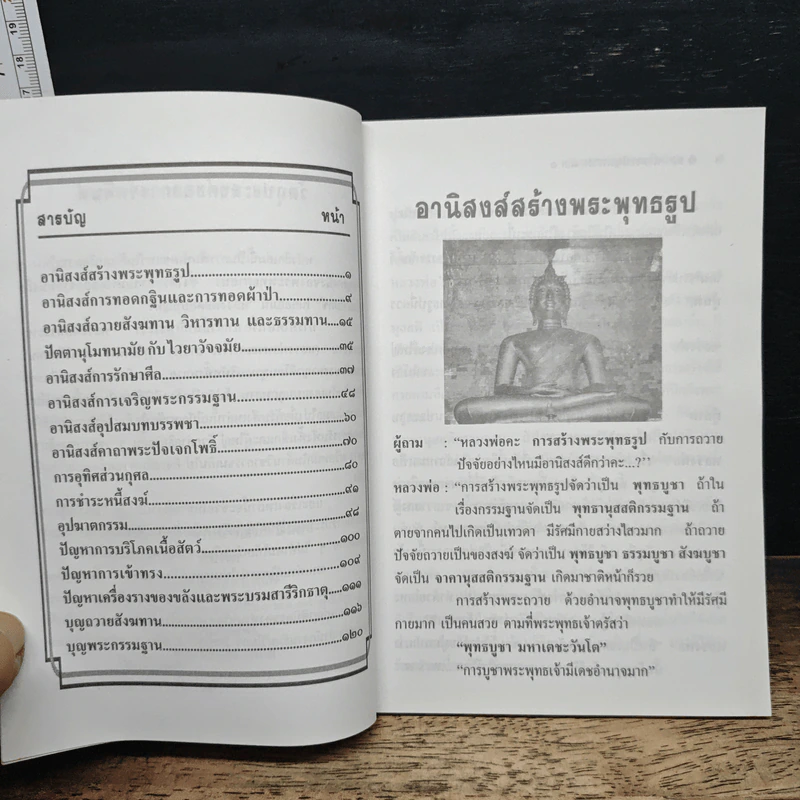 19
18
17
สารบัญ หน้า
อานิสงส์สร้างพระพุทธรูป...๑
อานิสงส์การทอดกฐินและการทอดผ้าป่า...๙
อานิสงส์ถวายสังฆทาน วิหารทาน และธรรมทาน...๑๕
ปัตตานุโมทนามัย กับ ไวยาวัจจมัย...๓๕
อานิสงส์การรักษาศีล...๓๗
อานิสงส์การเจริญพระกรรมฐาน...๔๘
อานิสงส์อุปสมบทบรรพชา...๖๐
อานิสงส์คาถาพระปัจเจกโพธิ์...๗๐
การอุทิศส่วนกุศล...๘๐
การชำระหนี้สงฆ์...๙๑
อุปฆาตกรรม...๙๘
ปัญหาการบริโภคเนื้อสัตว์...๑๐๐
ปัญหาการเข้าทรง...๑๐๙
ปัญหาเครื่องรางของขลังและพระบรมสารีริกธาตุ...๑๑๑
บุญถวายสังฆทาน...๑๑๖
บุญพระกรรมฐาน...๑๒๐
อานิสงส์สร้างพระพุทธรูป
ผู้ถาม : “หลวงพ่อคะ การสร้างพระพุทธรูป กับการถวาย
ปัจจัยอย่างไหนมีอานิสงส์ดีกว่าคะ...?”
หลวงพ่อ : “การสร้างพระพุทธรูปจัดว่าเป็น พุทธบูชา ถ้าใน
เรื่องกรรมฐานจัดเป็น พุทธานุสสติกรรมฐาน ถ้า
ตายจากคนไปเกิดเป็นเทวดา มีรัศมีกายสว่างไสวมาก ถ้าถวาย
ปัจจัยถวายเป็นของสงฆ์ จัดว่าเป็น พุทธบูชา ธรรมบูชา สังฆบูชา
จัดเป็น จาคานุสสติกรรมฐาน เกิดมาชาติหน้าก็รวย
การสร้างพระถวาย ด้วยอำนาจพุทธบูชาทำให้มีรัศมี
กายมาก เป็นคนสวย ตามที่พระพุทธเจ้าตรัสว่า
“พุทธบูชา มหาเตชะวันโต”
“การบูชาพระพุทธเจ้ามีเดชอำนาจมาก”